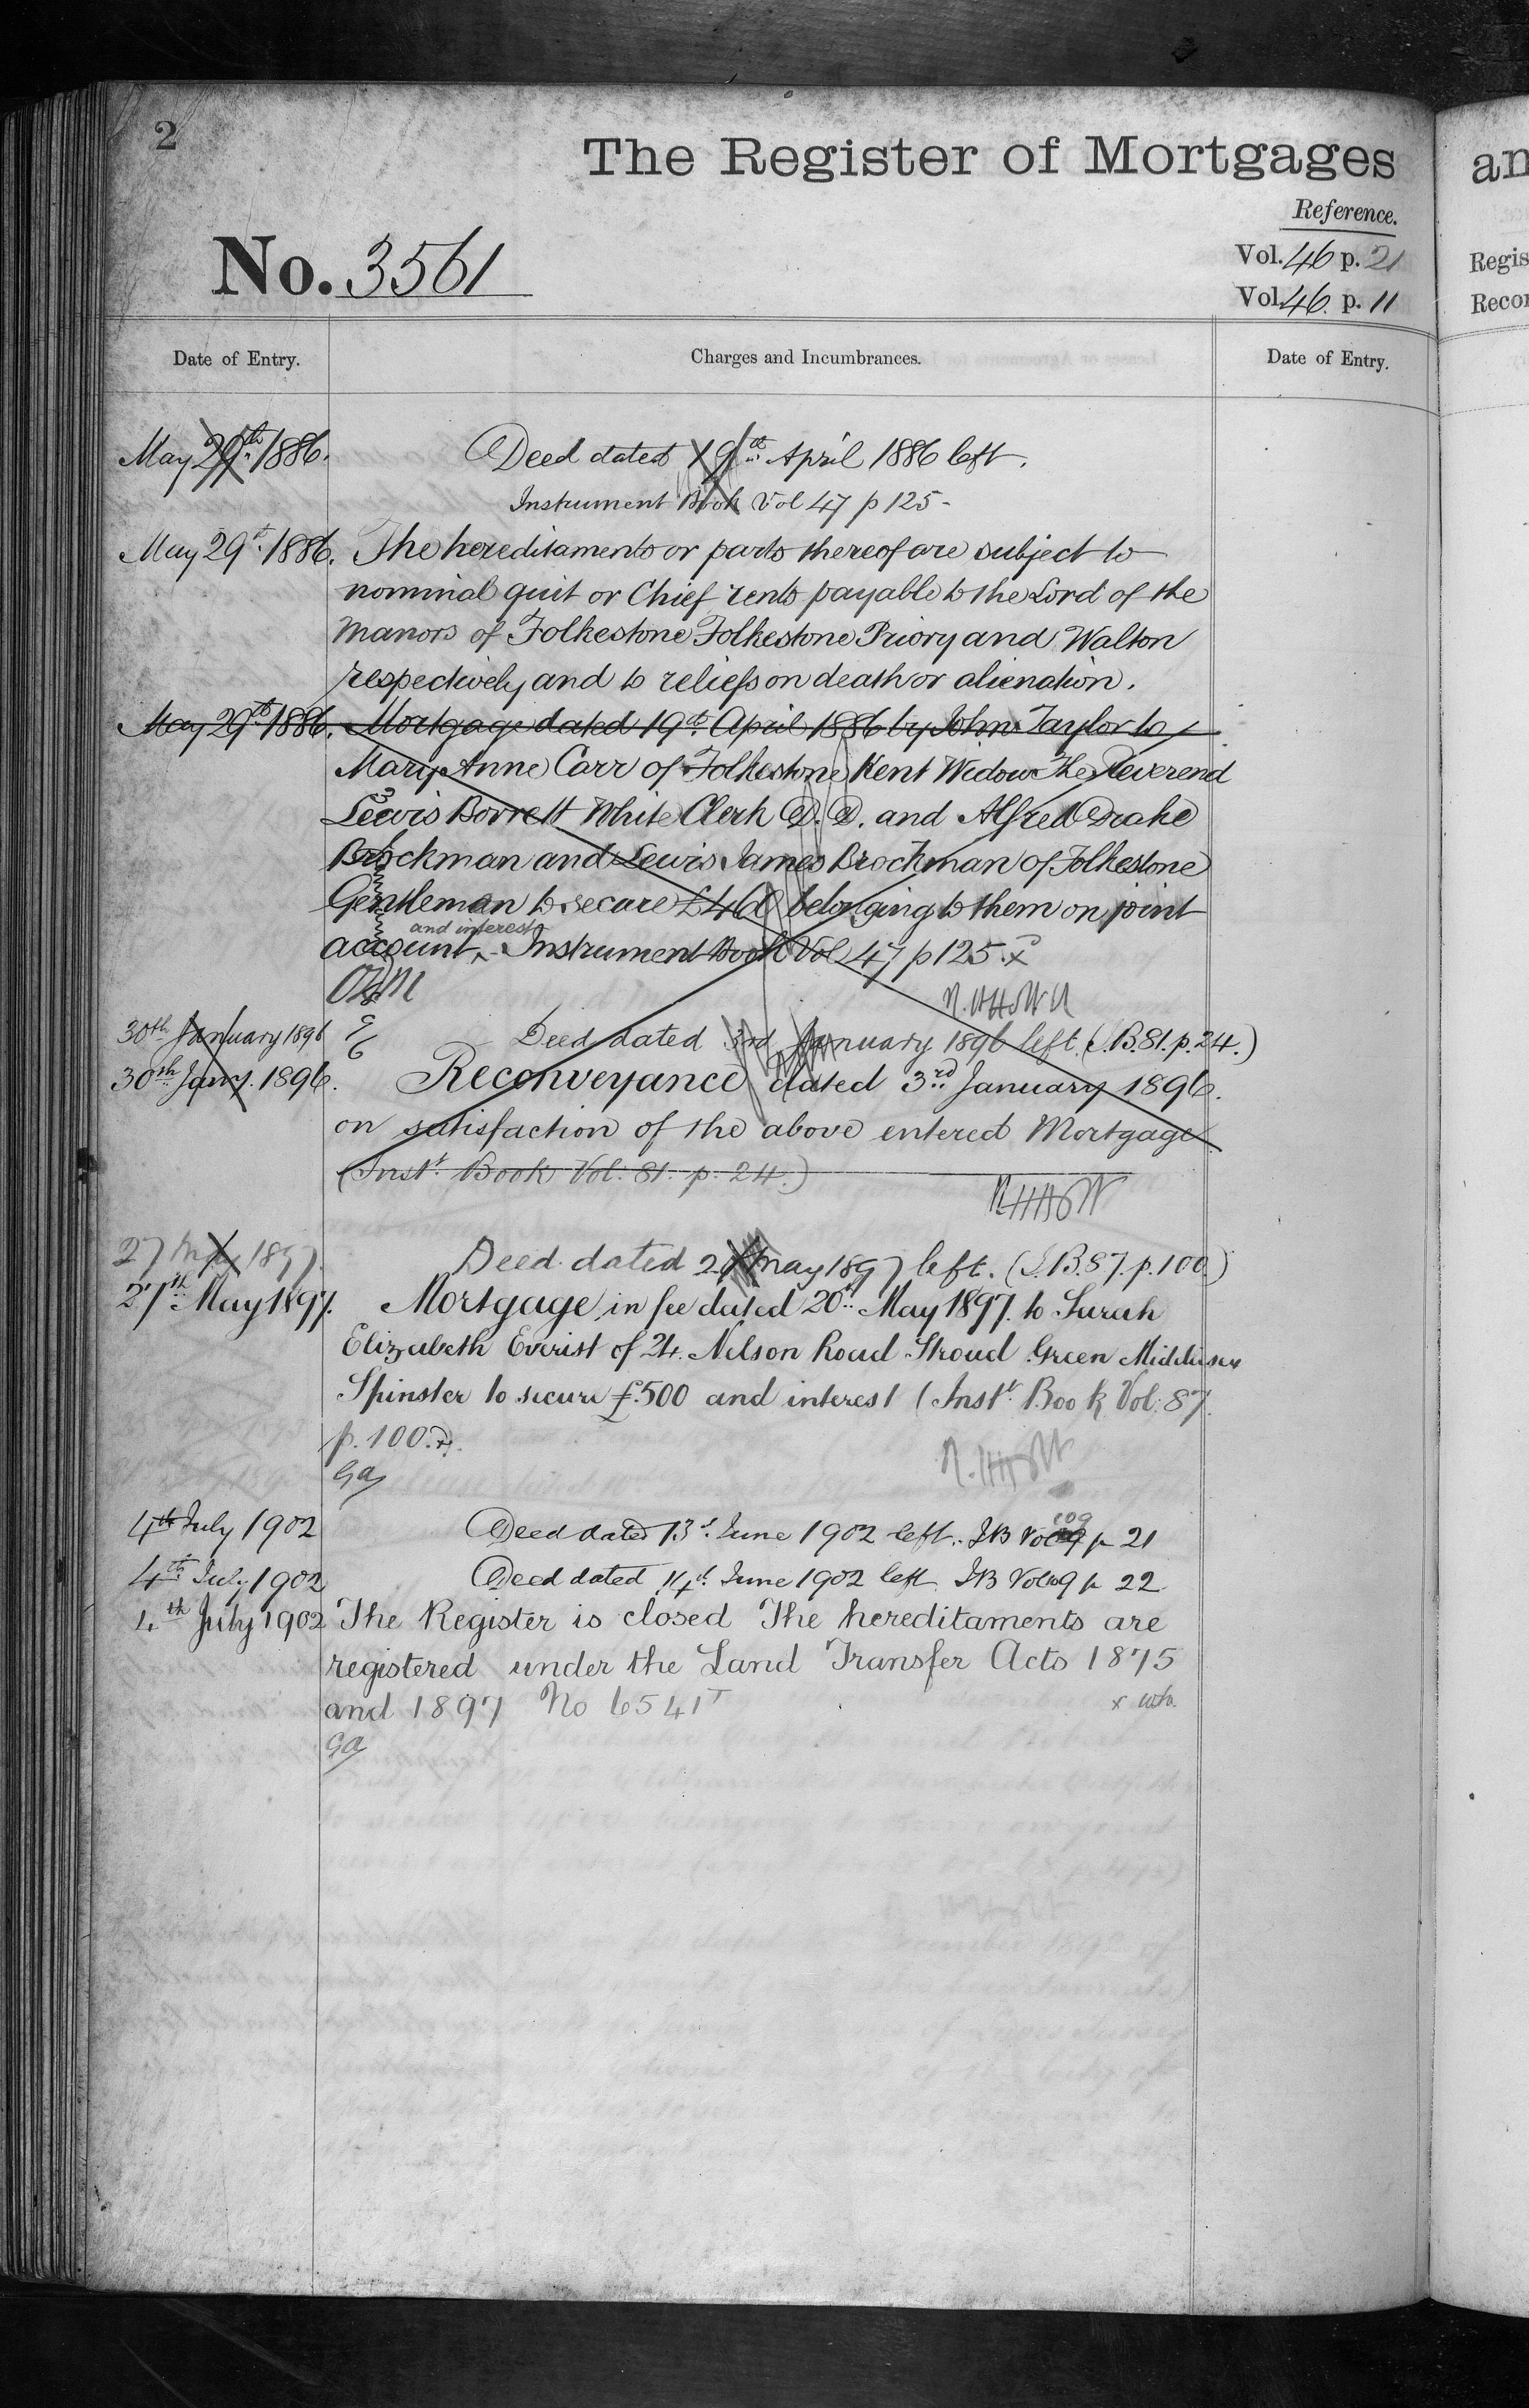 2
The Register of Mortgages
an
Reference.
No. 3561
Vol. 46 p. 21
Vol. 46. p. 11
Regis
Recor
Date of Entry.
Charges and Incumbrances.
Date of Entry.
May 29th 1886. Deed dated 19th April 1886 left.
Instrument Book Vol 47 p 125-
May 29th 1886. The hereditaments or parts thereof are subject to
nominal quit or Chief rents payable to the Lord of the
Manors of Folkestone Folkestone Priory and Walton
respectively and to reliefs on death or alienation.
May 29th 1886. Mortgage dated 19th April 1886 by John Taylor to
Mary Anne Carr of Folkestone Kent Widow The Reverend
Lewis Borrett White Clerk D.D. and Alfred Drake
Brockman and Lewis James Brockman of Folkestone
Gentleman to secure £460 belonging to them on joint
and interest
account - Instrument Book Vol 47 p 125. x
30th January 1896 Deed dated 3rd January 1896 left. (I.B. 81. p. 24.)
30th Jany. 1896. Reconveyance dated 3rd January 1896.
on satisfaction of the above entered Mortgage
(Inst. Book Vol: 81. p. 24.)
27 May 1897. Deed dated 20 May 1897 left. (I.B. 87. p. 100.)
27th May 1897. Mortgage in fee dated 20th May 1897. to Sarah
Elizabeth Everist of 24. Nelson Road Stroud Green Middlesex
Spinster to secure £500 and interest (Inst. Book Vol: 87.
p. 100.)
Ga
4th July 1902 Deed dated 13th June 1902 left. IB Vol 109 p 21
4th July 1902 Deed dated 14th June 1902 left IB Vol 109 p 22
4th July 1902 The Register is closed The hereditaments are
registered under the Land Transfer Acts 1875
and 1897 No 6541T
Ga